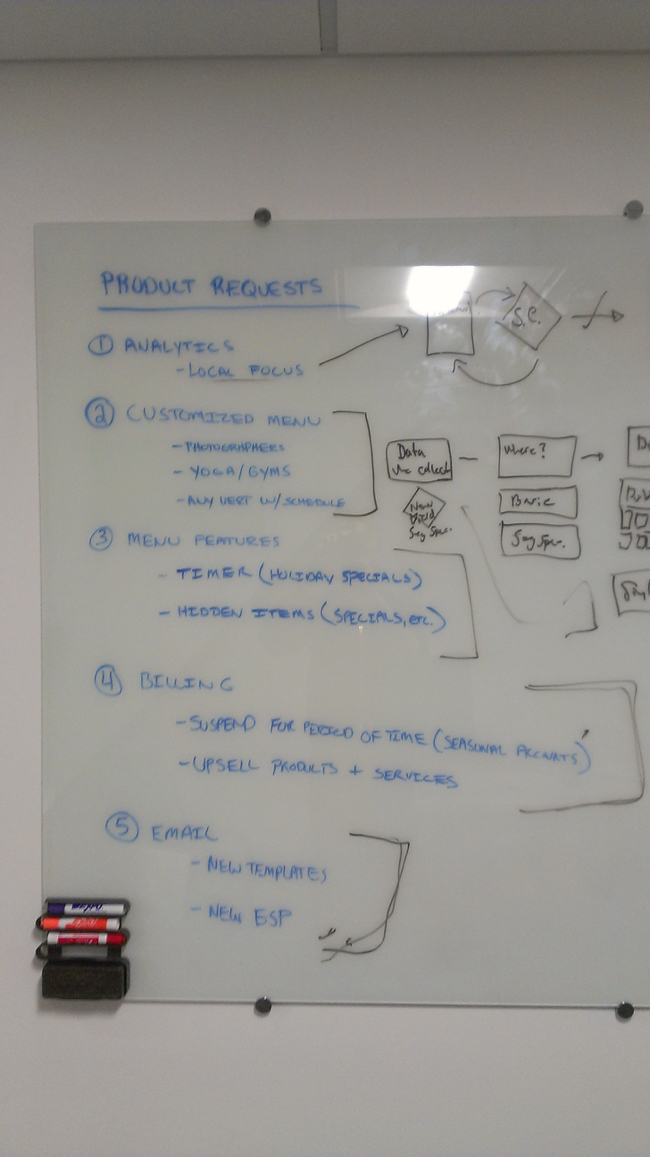 PRODUCT REQUESTS
① ANALYTICS
- LOCAL FOCUS
② CUSTOMIZED MENU
- PHOTOGRAPHERS
- YOGA/GYMS
- ANY VERT W/SCHEDULE
③ MENU FEATURES
- TIMER (HOLIDAY SPECIALS)
- HIDDEN ITEMS (SPECIALS, ETC.)
④ BILLING
- SUSPEND FOR PERIOD OF TIME (SEASONAL ACCOUNTS)
- UPSELL PRODUCTS + SERVICES
⑤ EMAIL
- NEW TEMPLATES
- NEW ESP
S.C.
Data
we collect
New
Seg Spec.
Where?
Basic
Seg Spec.